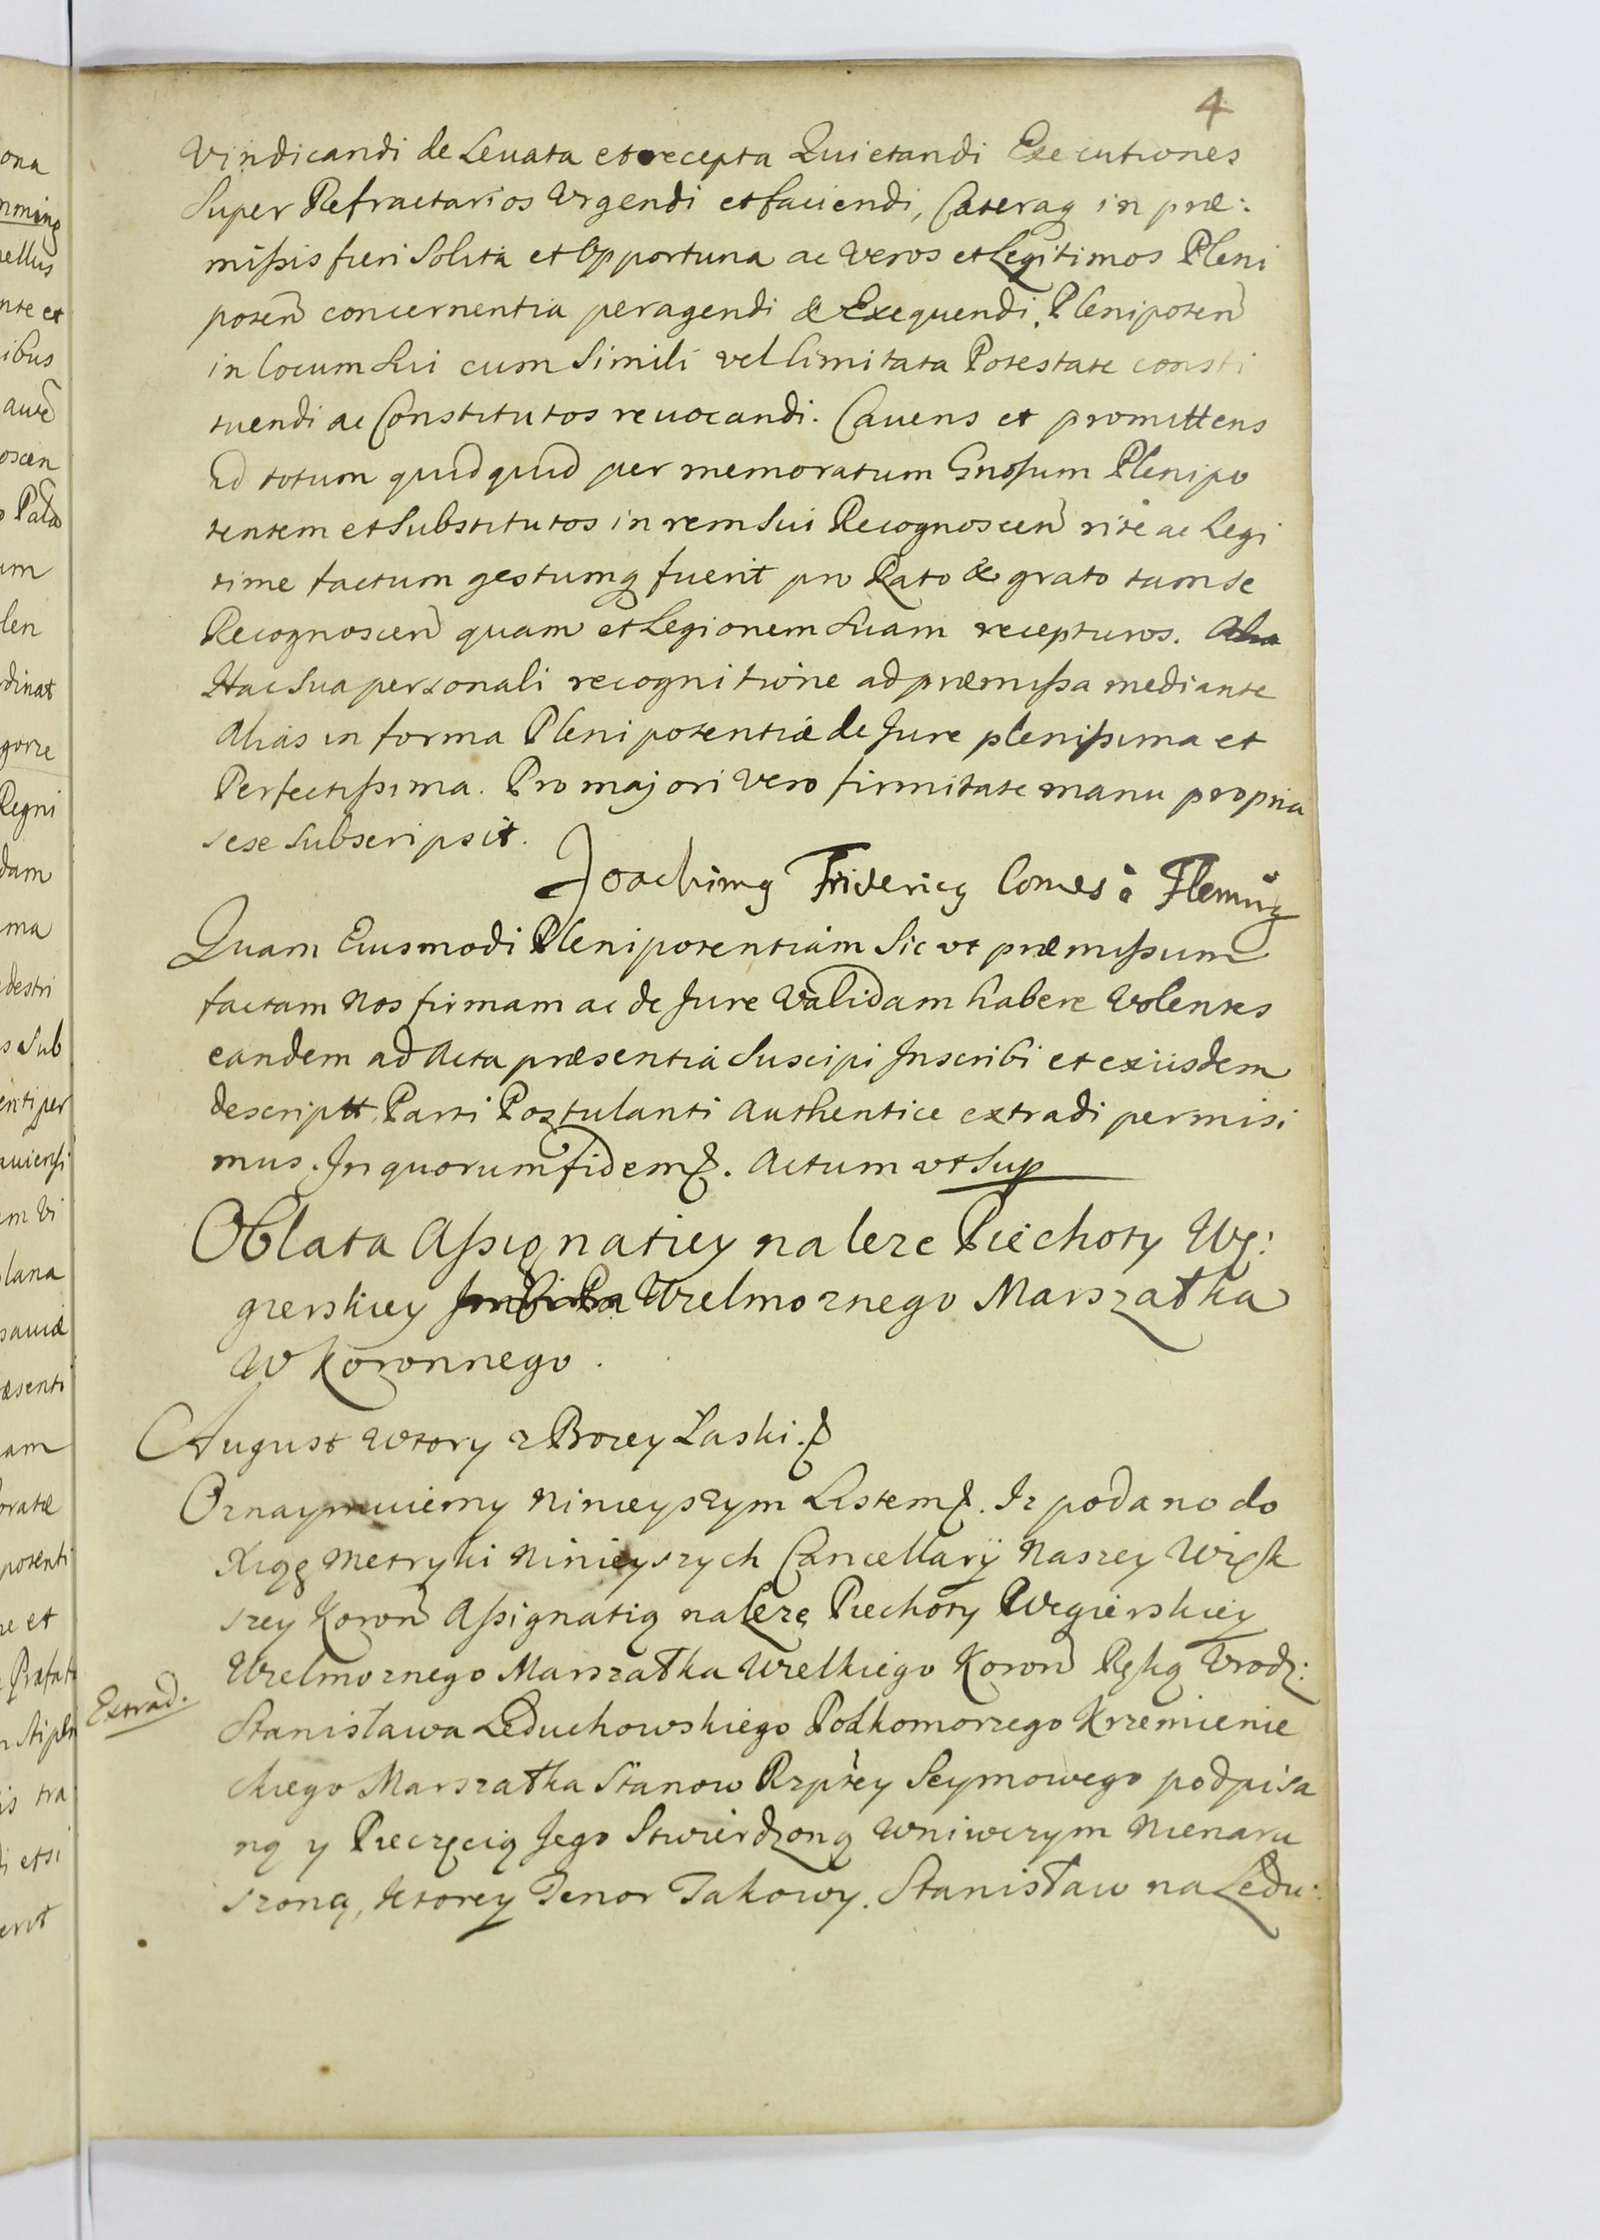 4
Vindicandi de Levata et recepta Quietandi Executiones
Super Refractarios Urgendi et faciendi, Caeteraq in præ:
mißis fieri Solita et Opportuna ac Veros et Legitimos Pleni
poten concernentia peragendi & Exequendi, Plenipoten
in locum Sui cum Simili vel limitata Potestate consti
tuendi ac Constitutos revocandi. Cavens et promittens
Id totum quidquid per memoratum Gnosum Plenipo
tentem et Substitutos in rem Sui Recognoscen rite ac Legi
time factum gestumq fuerit pro Rato & grato tam se
Recognoscen quam et Legionem Suam recepturos.
Hac Sua personali recognitione ad præmißa mediante
Alias in forma Plenipotentiæ de Jure plenißima et
Perfectißima. Pro majori vero firmitate manu propria
sese Subscripsit.
Joachimq Fridericq Comes à Fleming
Quam Eiusmodi Plenipotentiam Sic ut præmißum
factam Nos firmam ac de Jure Validam habere Volentes
eandem ad Acta præsentia Suscipi Inscribi et exiisdem
descriptt Parti Postulanti Authentice extradi permisi
mus. In quorum fidem. Actum ut Sup
Oblata Aßignatiey na leże Piechoty Wę:
gierskiey Wielmoznego Marszałka
W Koronnego.
August Wtory z Bozey Łaski.
Oznaymuiemy Ninieyszym Listem. Iz podano do
Xiąg Metryki Ninieyszych Cancellaryi Naszey Więk
szey Koron Aßignatią na Leżę Piechoty Węgierskiey
Wielmoznego Marszałka Wielkiego Koron Ręką Urodz:
Extrad.
Stanisława Leduchowskiego Podkomorzego Krzemienie
ckiego Marszałka Stanow Rzptey Seymowego podpisa
ną y Pieczęcią Jego Stwierdzoną Wniwczym Nienaru
szoną, Ktorey Tenor Takowy. Stanisław na Ledu: